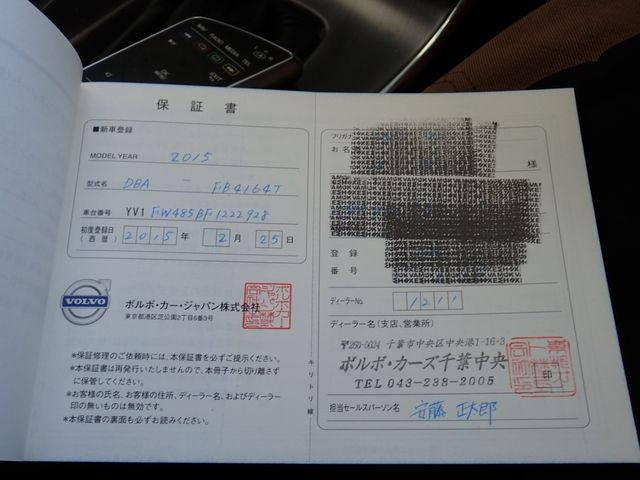 NAVI RADIO MEDIA TEL
EXIT
保証書
■新車登録
MODEL YEAR 2015
型式名 DBA - FB4164T
車台番号 YV1 FW485BF1222928
初度登録日(西暦) 2015年 2月 25日
VOLVO
ボルボ・カー・ジャパン株式会社
東京都港区芝公園2丁目6番3号
*保証修理のご依頼時には、本保証書を必ずご提示ください。
*本保証書は再発行いたしませんので、本冊子から切り離さずに保管してください。
*お客様の氏名、お客様の住所、ディーラー名、およびディーラー印の無いものは無効です。
*本保証書の裏面も必ずお読みください。
キリトリ線
フリガナ
お名
様
登録
番号
ディーラーNo. 1211
ディーラー名(支店、営業所)
〒260-0024 千葉市中央区中央港1-16-3
ボルボ・カーズ千葉中央
TEL 043-238-2005
印
担当セールスパーソン名 安藤 正太郎